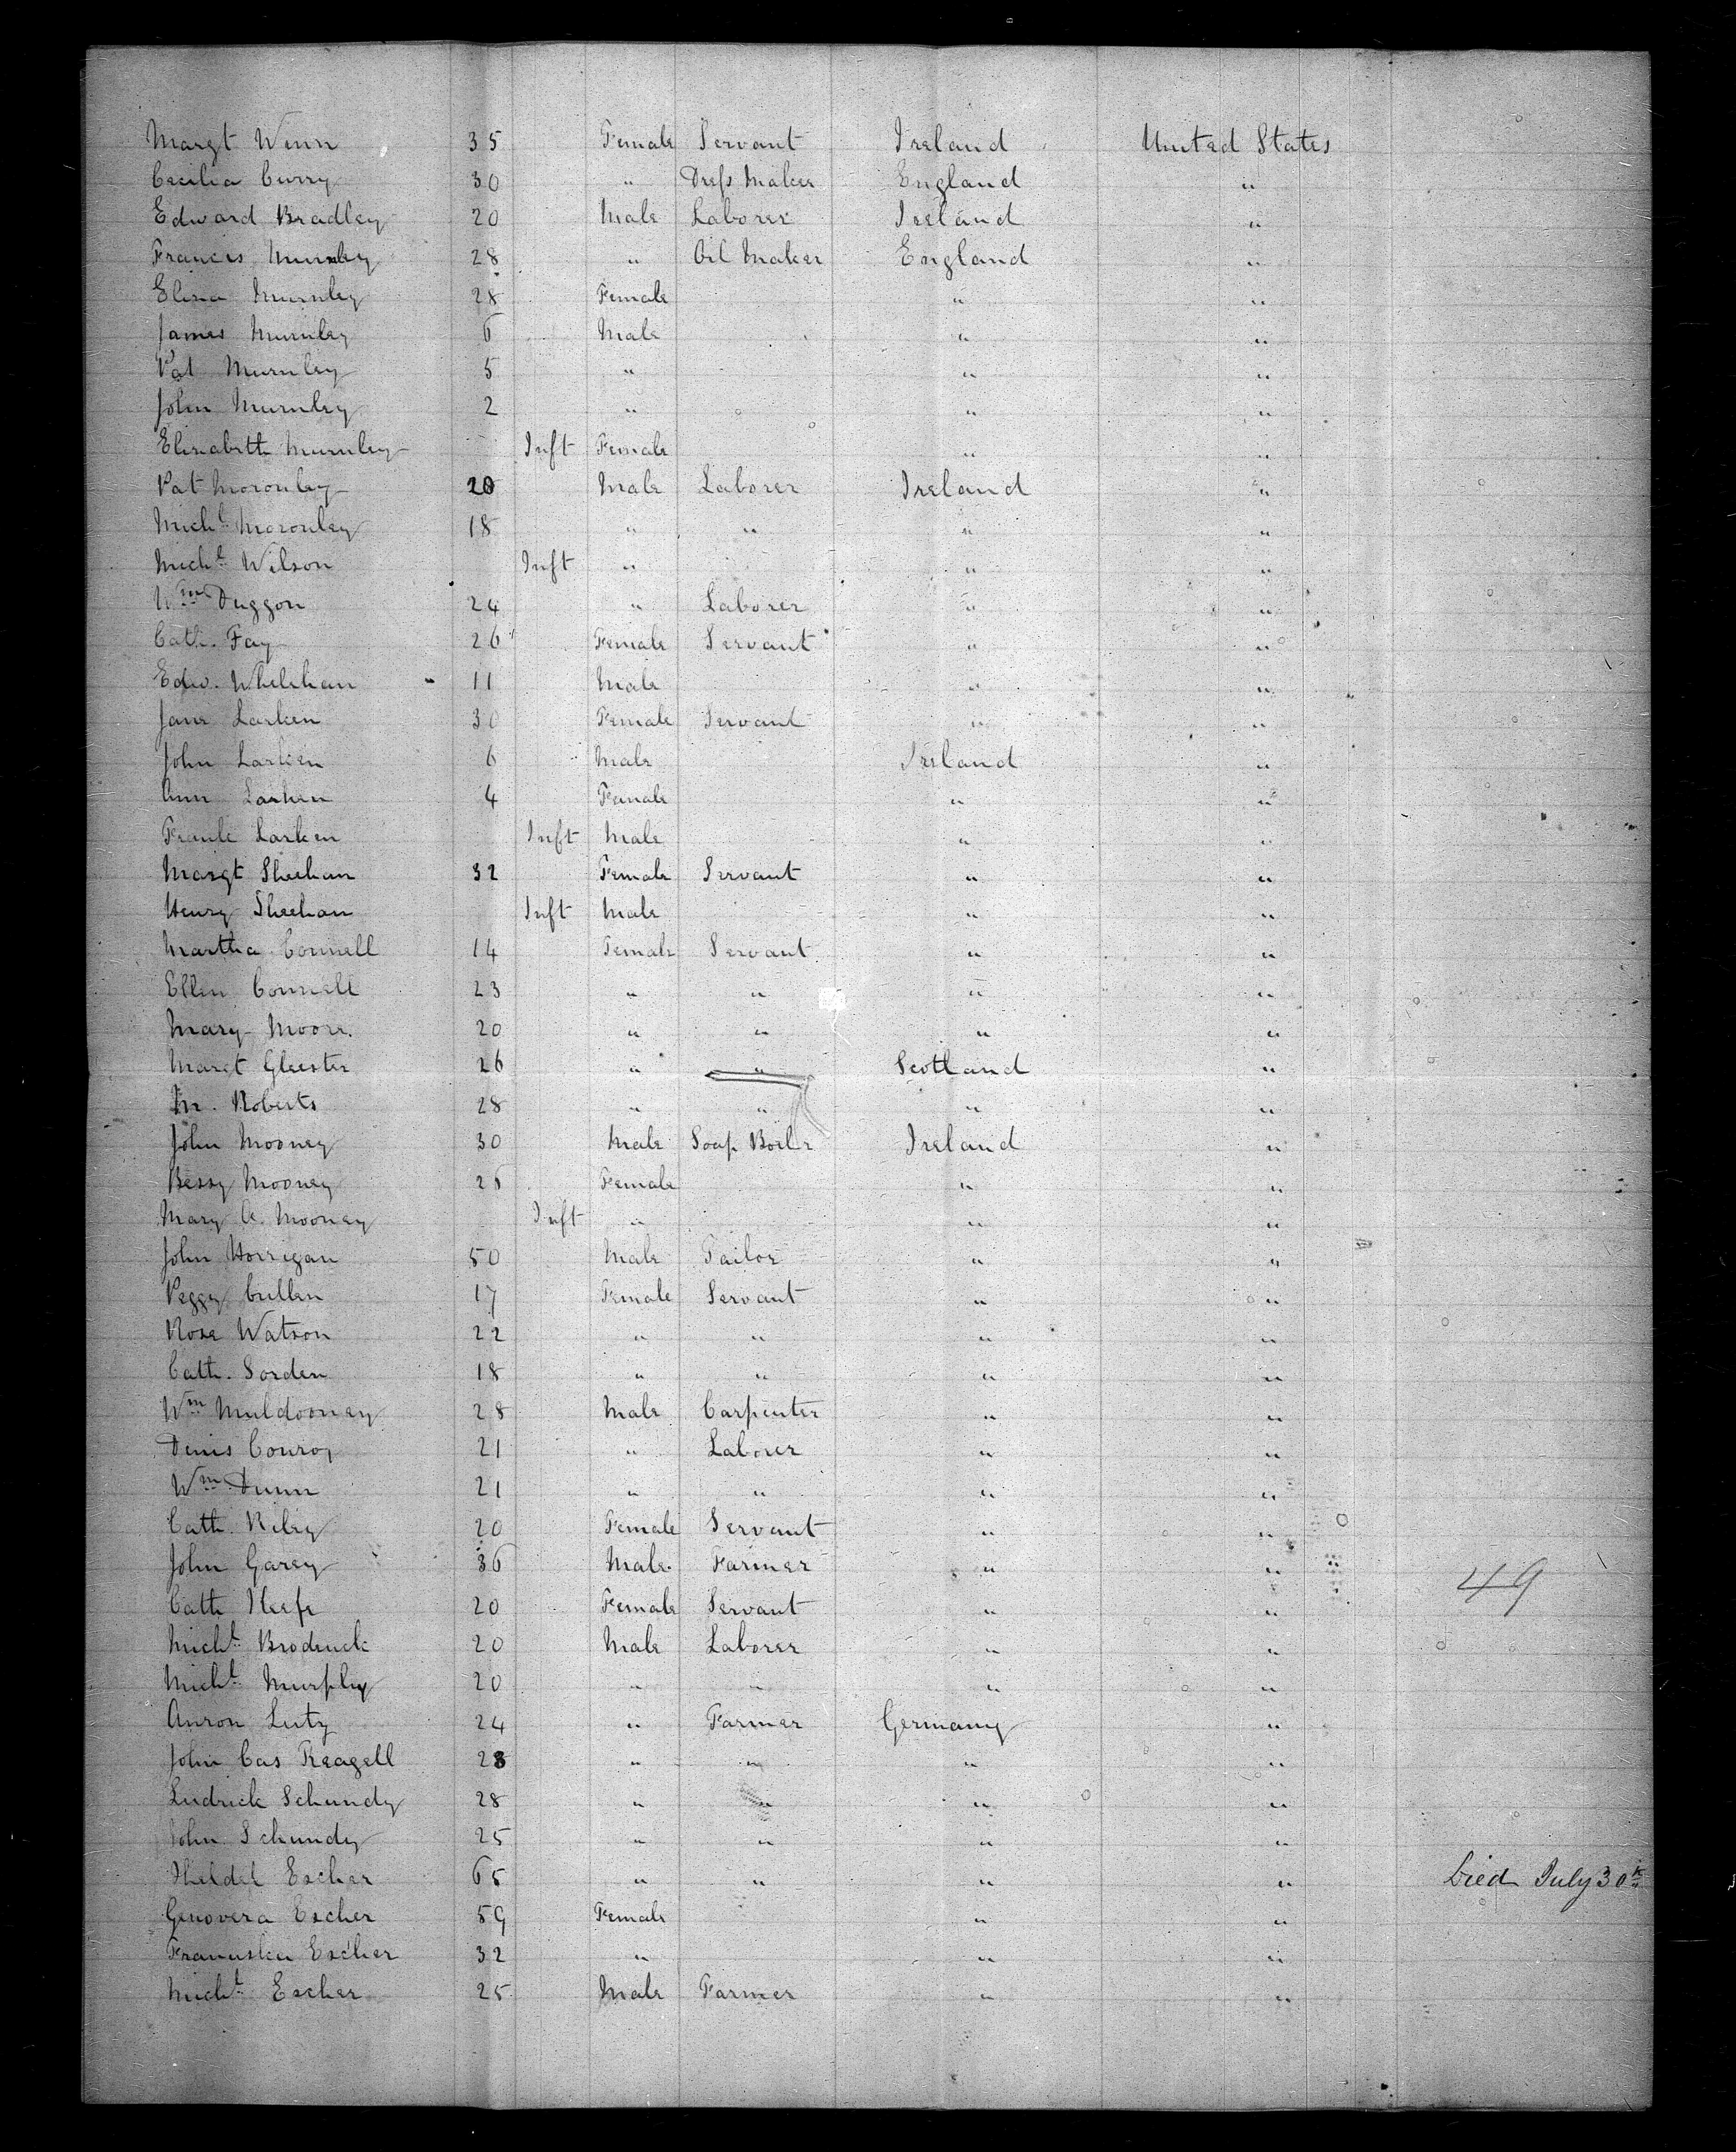 Margt Winn 35 Female Servant Ireland United States
Cecilia Curry 30 " Dress Maker England "
Edward Bradley 20 Male Laborer Ireland "
Francis Murnley 28 " Oil Maker England "
Elisa Murnley 28 Female " "
James Murnley 6 Male " "
Pat Murnley 5 " " "
John Murnley 2 " " "
Elisabeth Murnley Inft Female " "
Pat Moronley 20 Male Laborer Ireland "
Michl Moronley 18 " " " "
Michl Wilson Inft " " "
Wm Duggon 24 " Laborer " "
Cath. Fay 26 Female Servant " "
Edw. Whelehan 11 Male " "
Jane Larken 30 Female Servant " "
John Larken 6 Male Ireland "
Ann Larken 4 Female " "
Frank Larken Inft Male " "
Margt Sheehan 32 Female Servant " "
Henry Sheehan Inft Male " "
Martha Connell 14 Female Servant " "
Ellen Connell 23 " " " "
Mary Moore. 20 " " " "
Margt Gleester 26 " " Scotland "
M. Roberts 28 " " " "
John Mooney 30 Male Soap Boiler Ireland "
Bessy Mooney 26 Female " "
Mary A. Mooney Inft " " "
John Horrigan 50 Male Tailor " "
Peggy Cullen 17 Female Servant " "
Rose Watson 22 " " " "
Cath. Sorden 18 " " " "
Wm Muldooney 28 Male Carpenter " "
Denis Conroy 21 " Laborer " "
Wm Dunn 21 " " " "
Cath. Riley 20 Female Servant " "
John Garey 36 Male Farmer " " 49
Cath Keefe 20 Female Servant " "
Michl Brodrick 20 Male Laborer " "
Michl Murphy 20 " " " "
Anron Luty 24 " Farmer Germany "
John Cas Reagell 28 " " " "
Ludrick Schundy 28 " " " "
John Schundy 25 " " " "
Escher 65 " " " " Died July 30th
Genovera Escher 59 Female " "
Franuska Escher 32 " " "
Michl Escher 25 Male Farmer " "